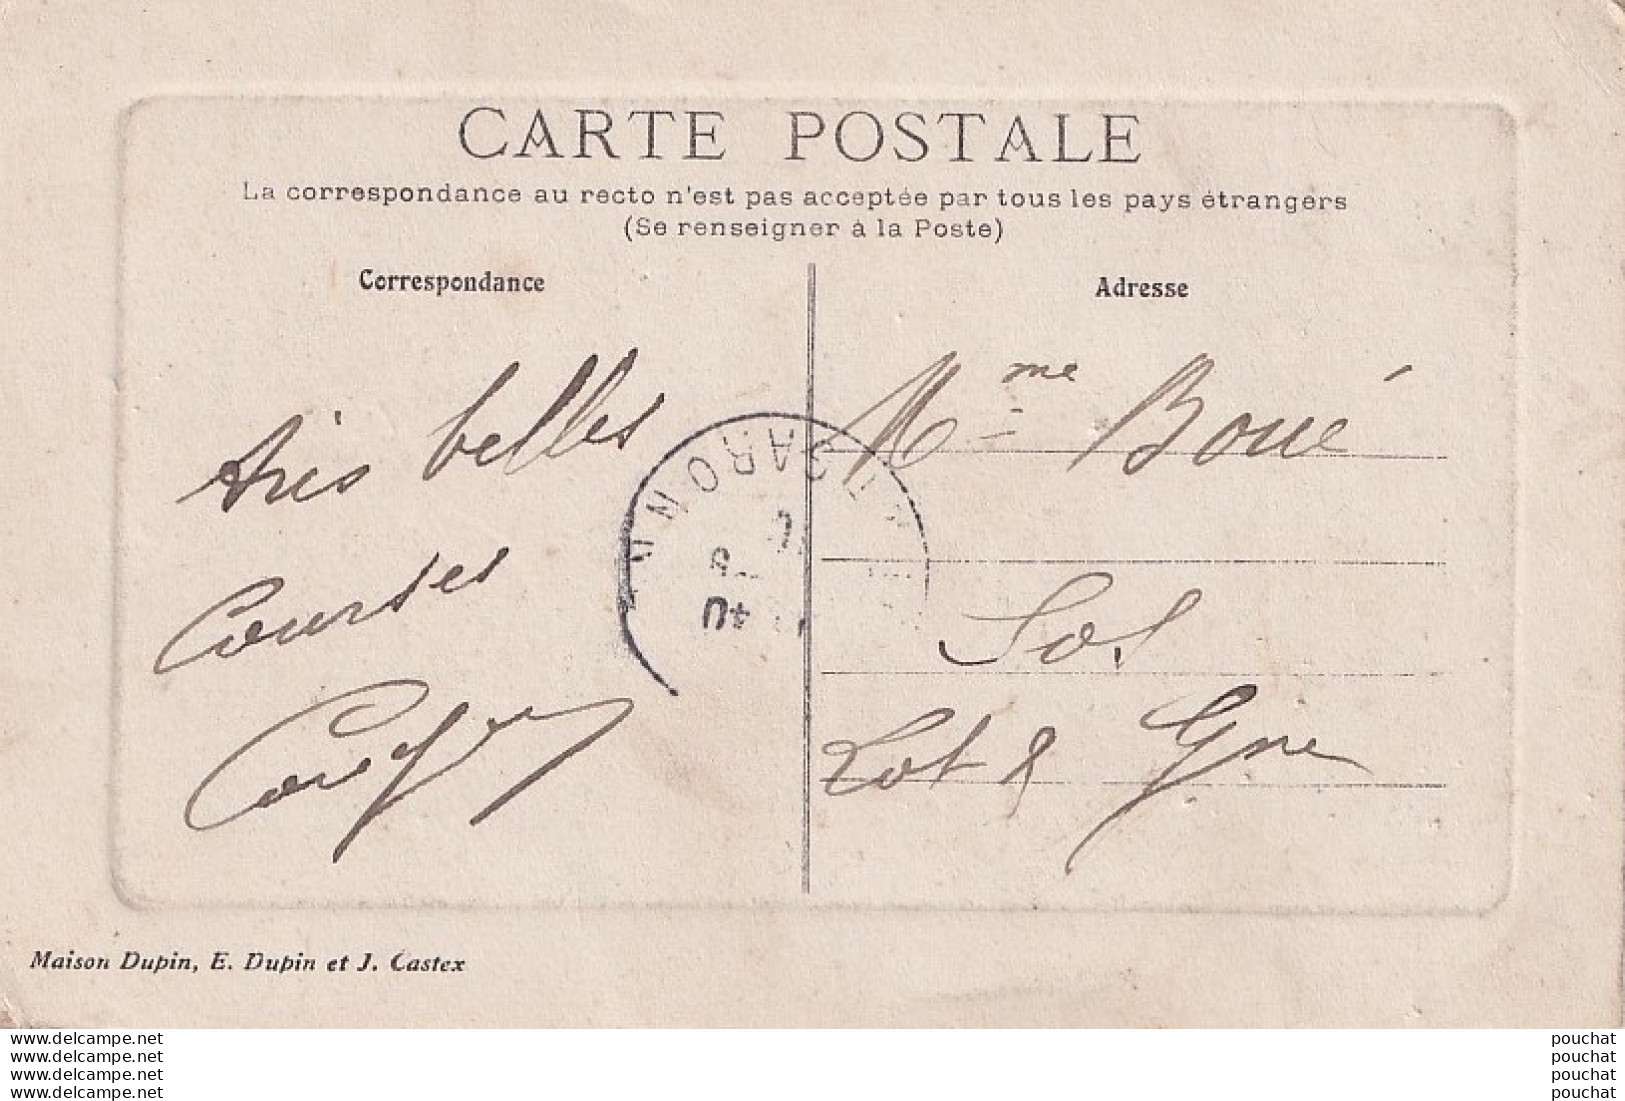 CARTE POSTALE
La correspondance au recto n'est pas acceptée par tous les pays étrangers
(Se renseigner à la Poste)
Correspondance
Très belles
Courses
Adresse
Mme Boué
Sos
Lot & Gne
Maison Dupin, E. Dupin et J. Castex
www.delcampe.net
www.delcampe.net
www.delcampe.net
www.delcampe.net
pouchat
pouchat
pouchat
pouchat